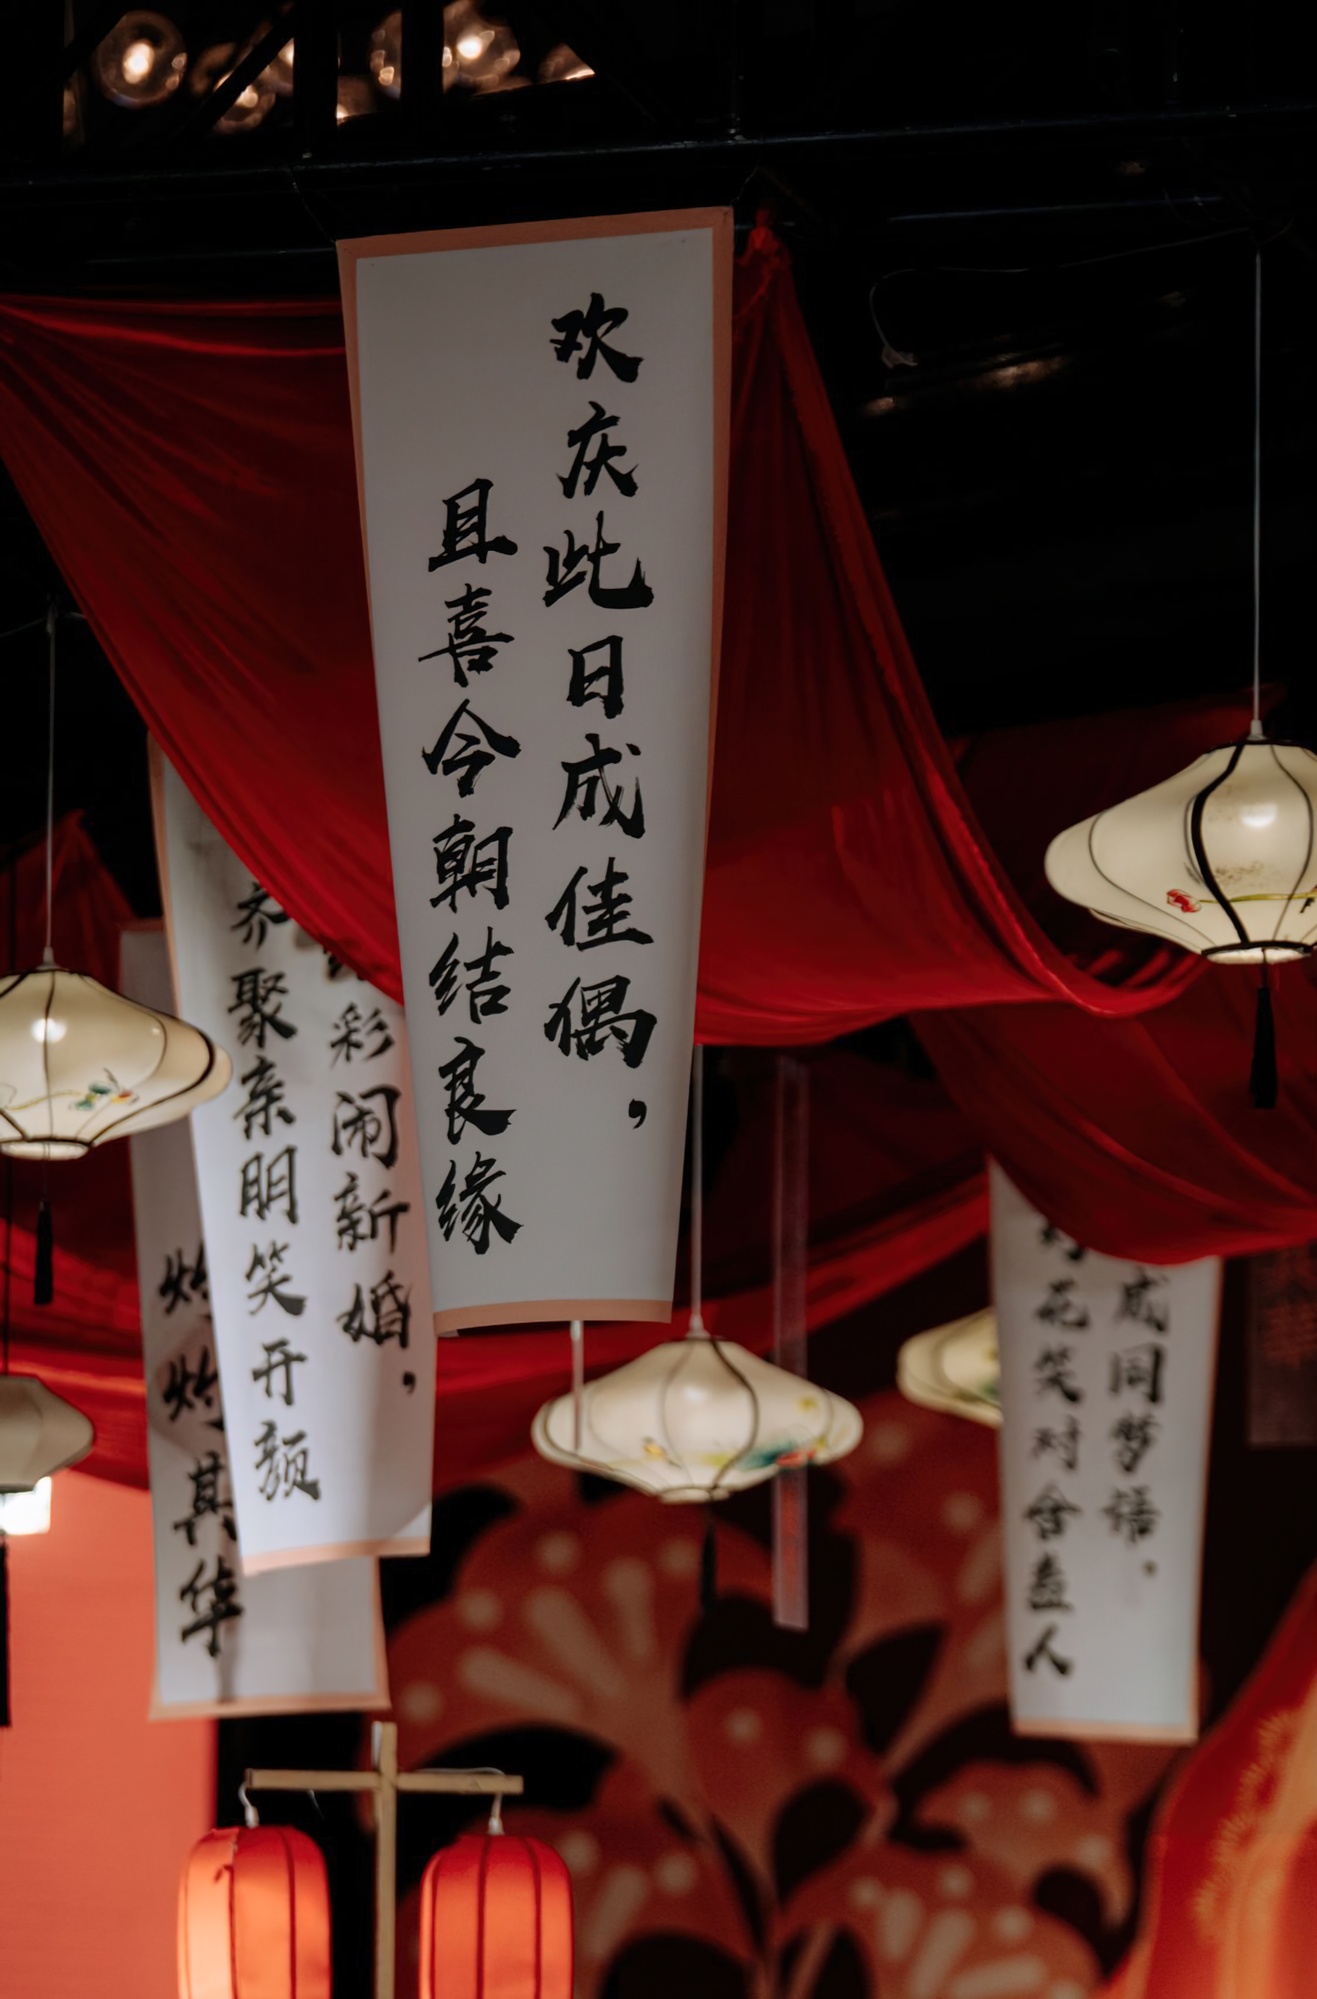 欢庆此日成佳偶，
且喜今朝结良缘
彩闹新婚，
齐聚亲朋笑开颜
灼灼其华
成同梦语，
花笑对含羞人